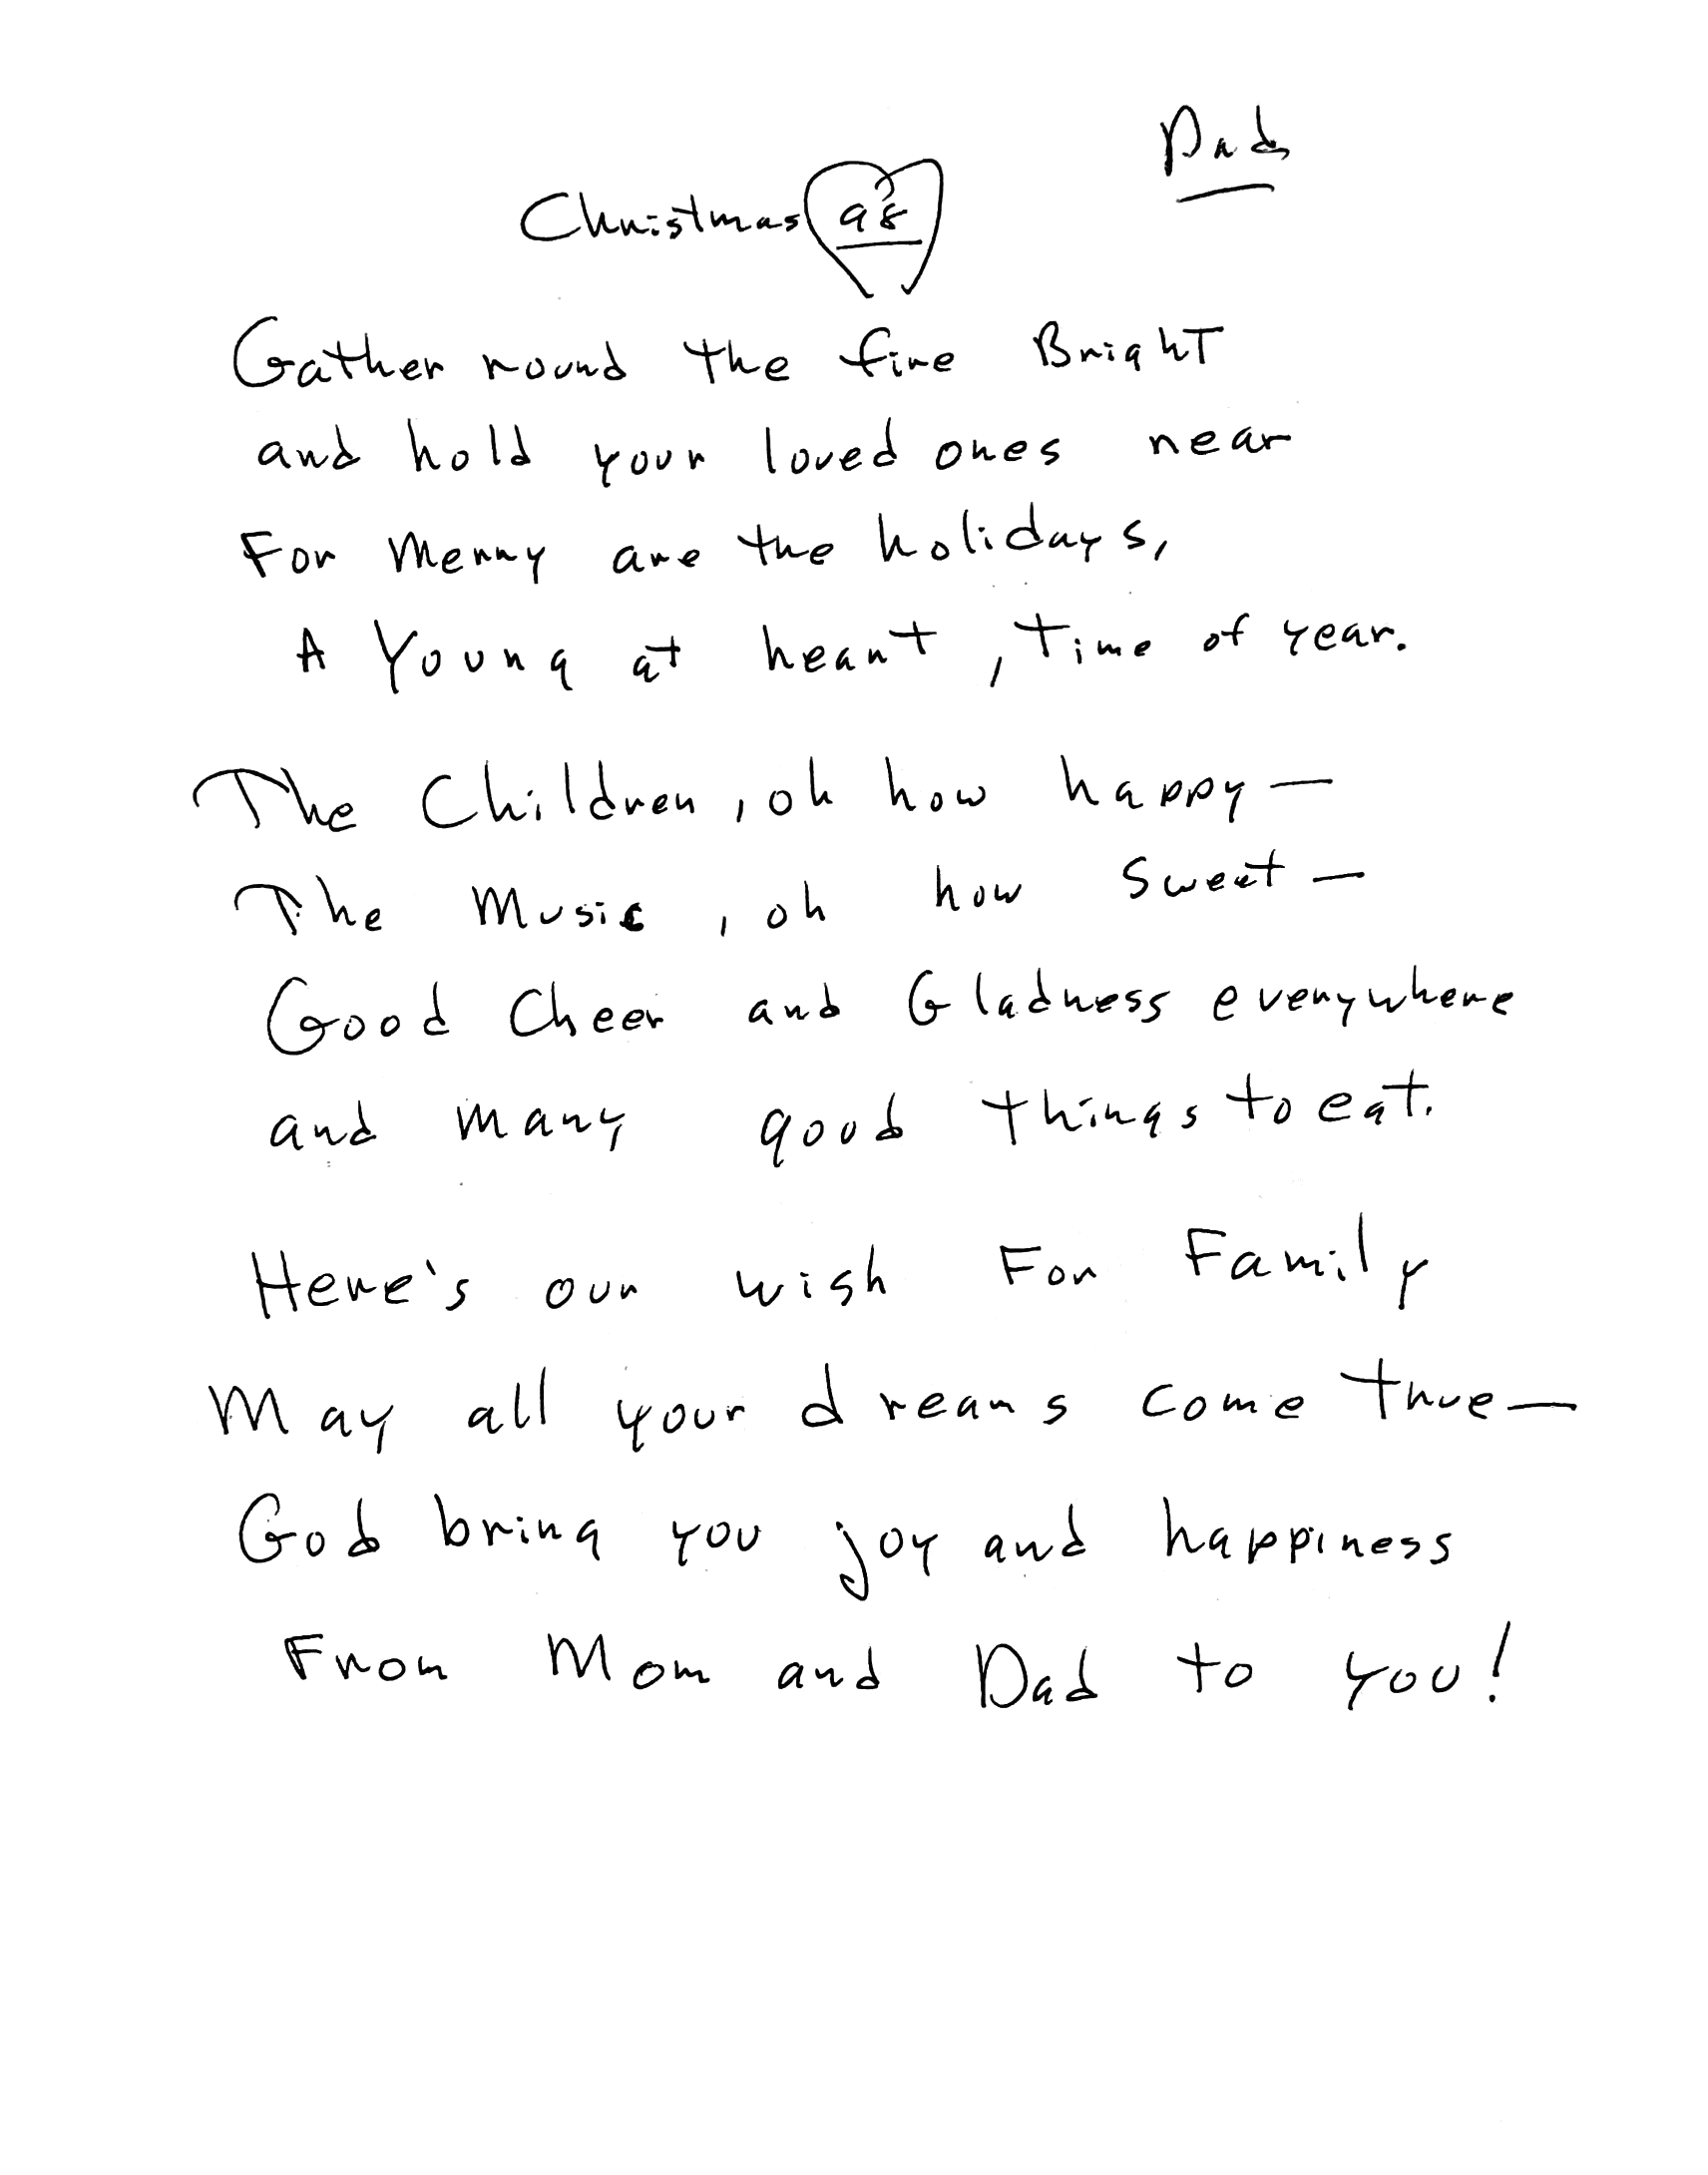 Dad
Christmas 98
Gather round the fire Bright
and hold your loved ones near
For Merry are the holidays,
A Young at heart, Time of year.
The Children, oh how happy—
The Music, oh how Sweet—
Good Cheer and Gladness everywhere
and many good things to eat.
Here's our wish For Family
May all your dreams come true—
God bring you joy and happiness
From Mom and Dad to you!